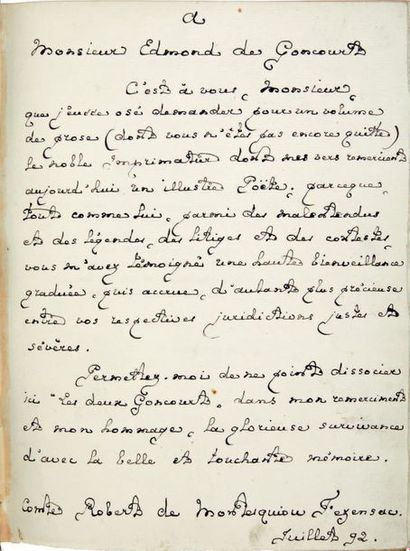 a
Monsieur Edmond de Goncourt
C'est à vous, Monsieur,
que j'eusse osé demander pour un volume
de prose (dont vous n'êtes pas encore quitte)
le noble Imprimatur dont mes vers remercient
aujourd'hui un illustre Poëte, parceque,
tout comme lui, parmi des malentendus
et des légendes, des litiges et des contestes,
vous m'avez témoigné une haute bienveillance
graduée, puis accrue, d'autant plus précieuse
entre vos respectives juridictions justes et
sévères.
Permettez-moi de ne point dissocier
ici "Les deux Goncourt, dans mon remerciment
et mon hommage, la glorieuse survivance
d'avec la belle et touchante mémoire.
Comte Robert de Montesquiou Fezensac.
Juillet 92.